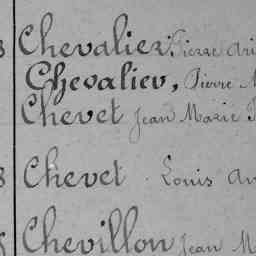 Chevalier Pierre
Chevalier, Pierre
Chevet Jean Marie
Chevet Louis
Chevillon Jean